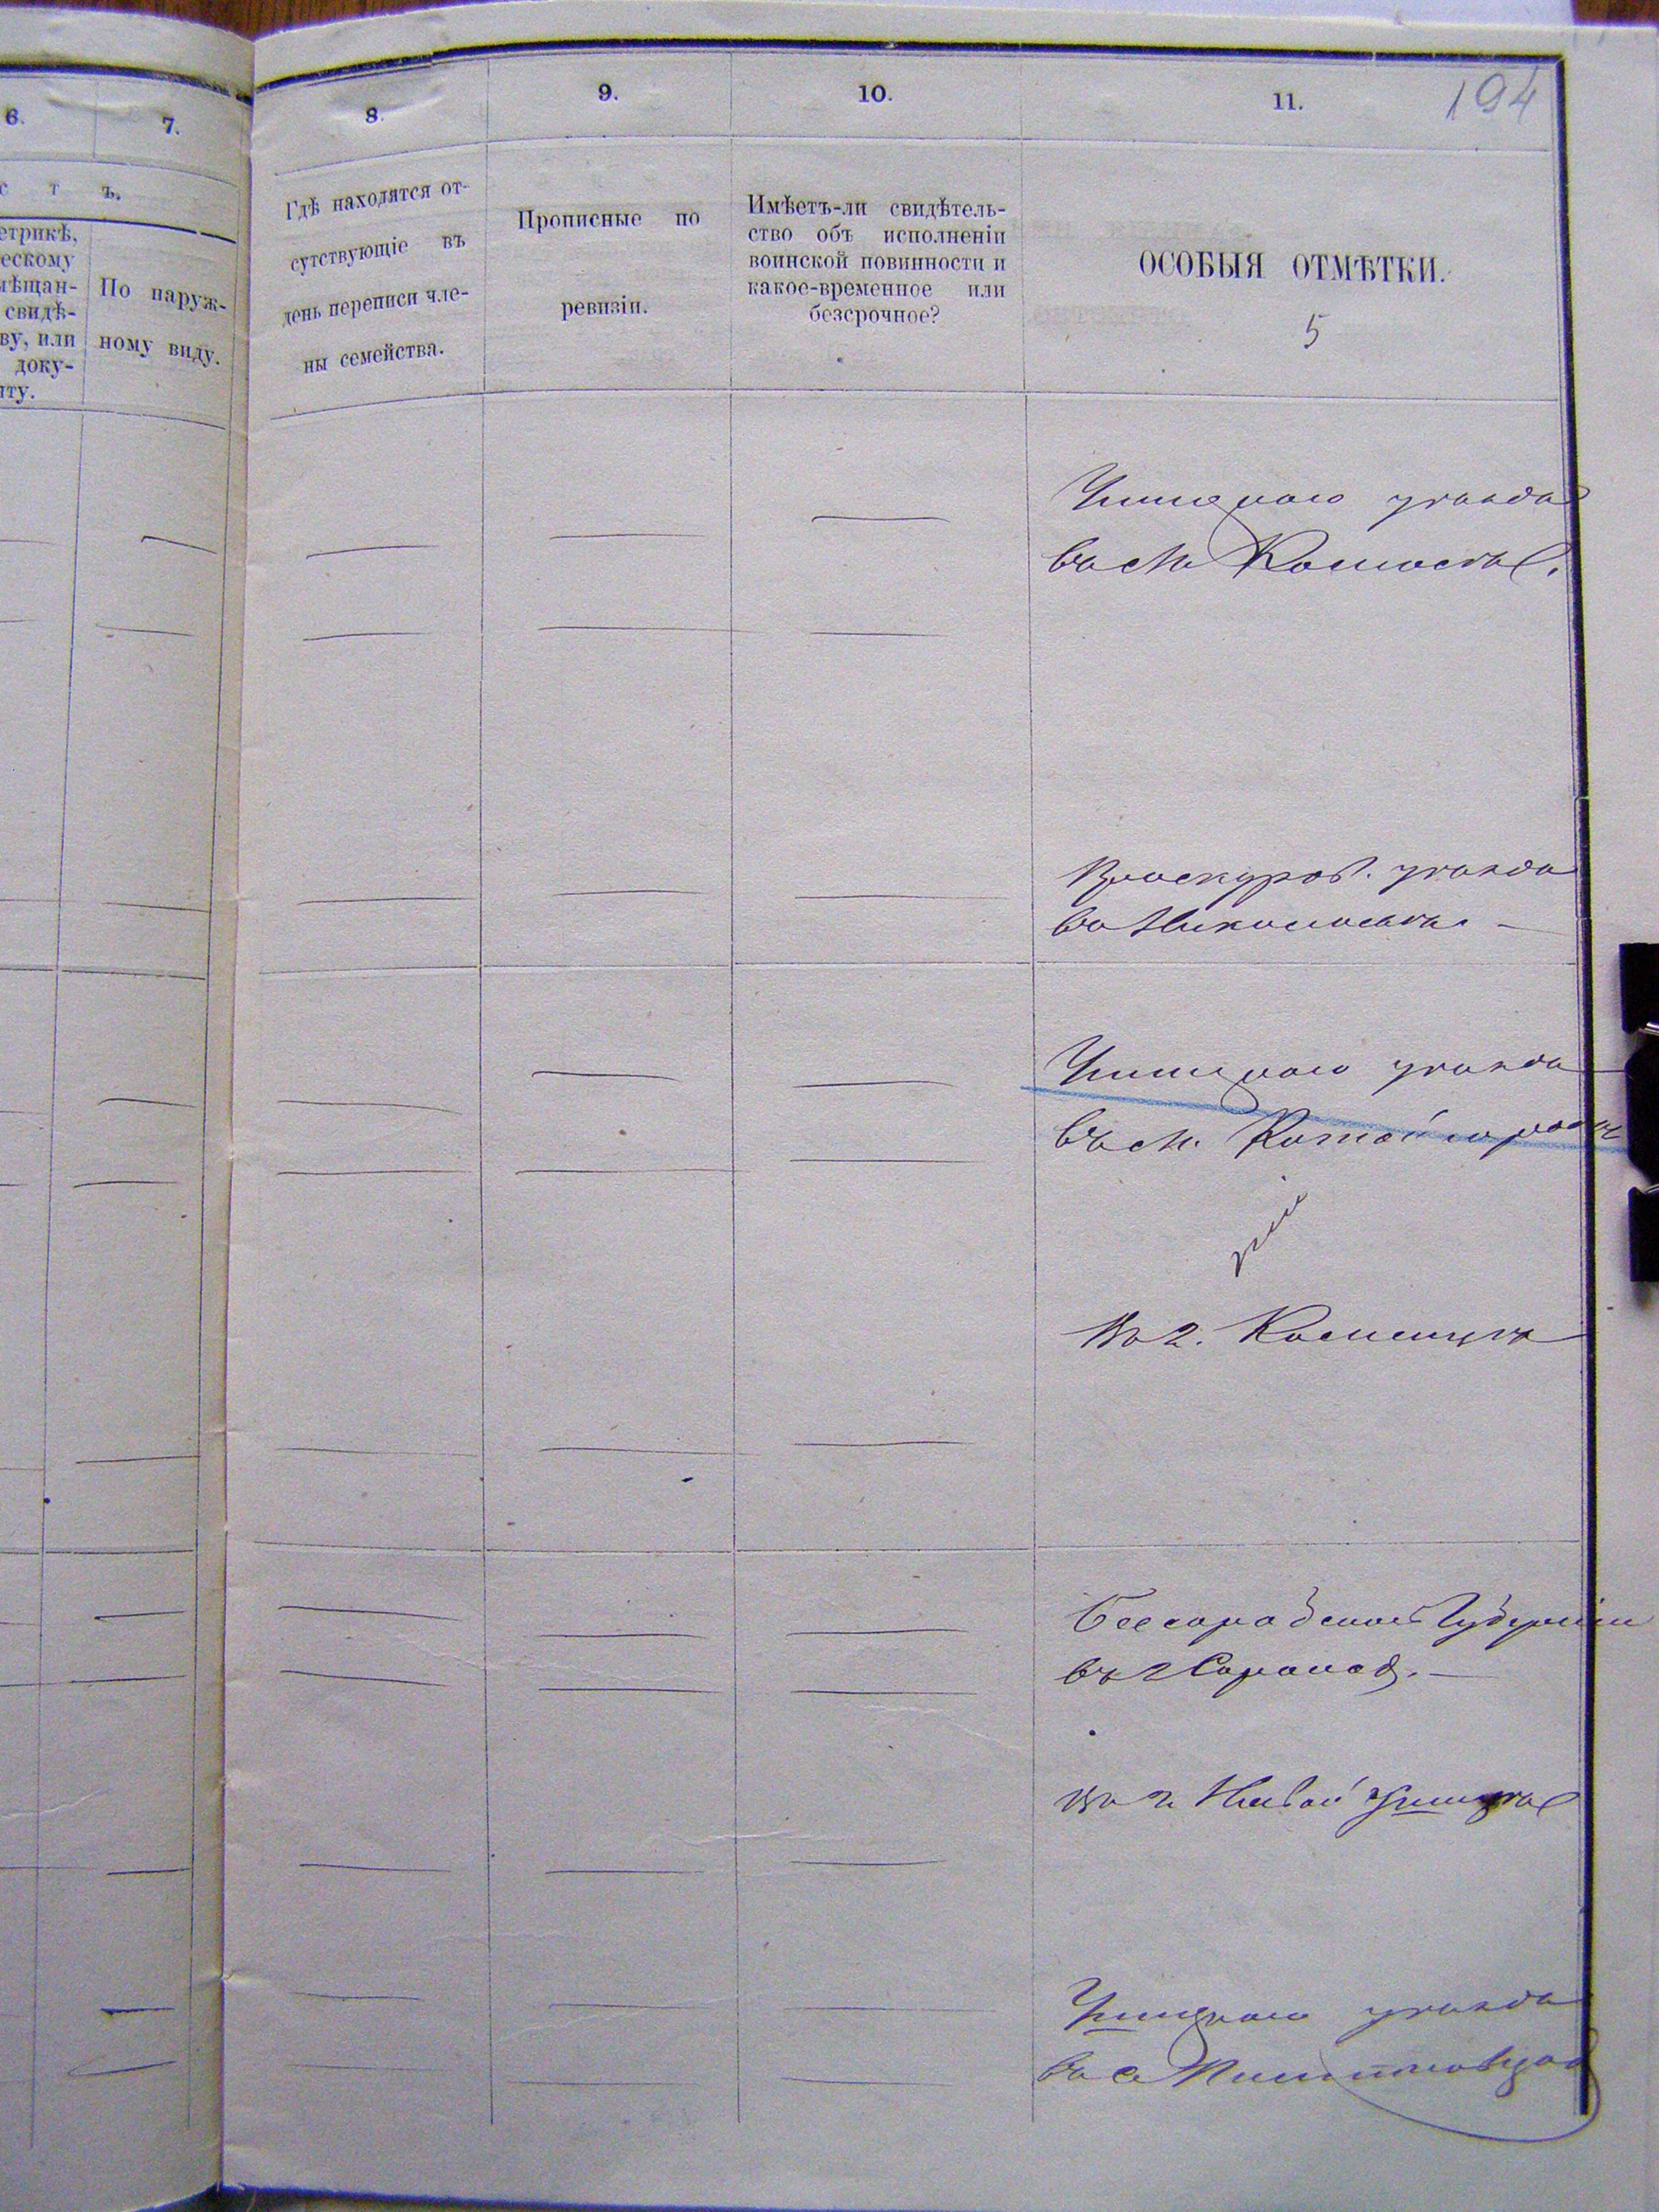 194
6.
7.
8.
9.
10.
11.
с т ъ.
етрикѣ,
ескому
мѣщан-
свидѣ-
ву, или
доку-
нту.
По наруж-
ному виду.
Гдѣ находятся от-
сутствующіе въ
день переписи чле-
ны семейства.
Прописные по
ревизіи.
Имѣетъ-ли свидѣтель-
ство объ исполненіи
воинской повинности и
какое-временное или
безсрочное?
ОСОБЫЯ ОТМѢТКИ.
5
Ушицкаго уѣзда
въ м.
Проскуров. уѣзда
въ Николаевѣ. –
Ушицкаго уѣзда
въ м. Китайгородѣ
Въ г. Каменцѣ
Бессарабской Губерніи
въ г Сороках. –
въ г. Новой Ушицѣ
Ушицкаго уѣзда
въ с.